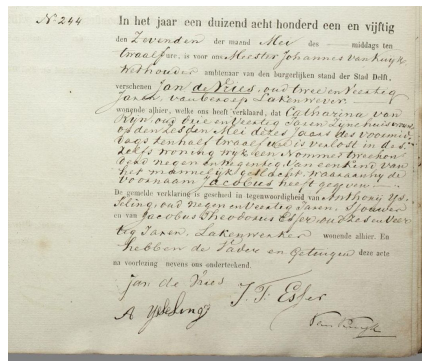 No 244
In het jaar een duizend acht honderd een en vijftig
den Zevenden der maand Mei des middags ten
twaalf ure, is voor ons Meester Johannes van Kuyk
Wethouder ambtenaar van den burgerlijken stand der Stad Delft,
verschenen Jan de Vries, oud twee en Veertig
Jaren, van beroep Lakenwever
wonende alhier, welke ons heeft verklaard, dat Catharina van
Rijn oud drie en Veertig Jaren Zijne huisvrouw
op den Zesden Mei dezes Jaars des voormid
dags ten half twaalf ure is verlost in des
zelfs woning wijk een Nommer twee hon
derd negen en van een kind van
het mannelijk geslacht, waaraan hij de
voornaam Jacobus heeft gegeven
De gemelde verklaring is geschied in tegenwoordigheid van Anthony Ys
seling, oud negen en Veertig Jaren,
en van Jacobus Theodosius Esser oud Zes en Veer
tig Jaren, Lakenwerker wonende alhier. En
hebben de Vader en Getuigen deze acte
na voorlezing nevens ons onderteekend.
Jan de Vries J. T. Esser
A Ysseling
Van Kuyk